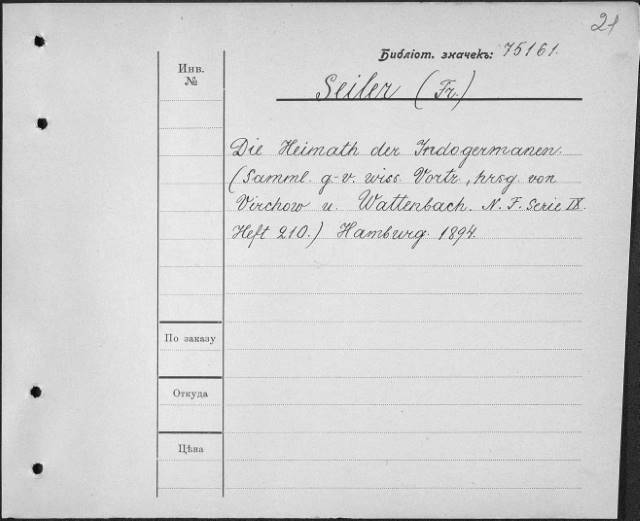 21
Библіот. значекъ: 75161.
Инв.
№
Seiler (Fr.)
Die Heimath der Indogermanen.
(Samml. g.-v. wiss. Vortr., hrsg. von
Virchow u. Wattenbach. N. F. Serie IX.
Heft 210.) Hamburg. 1894.
По заказу
Откуда
Цѣна